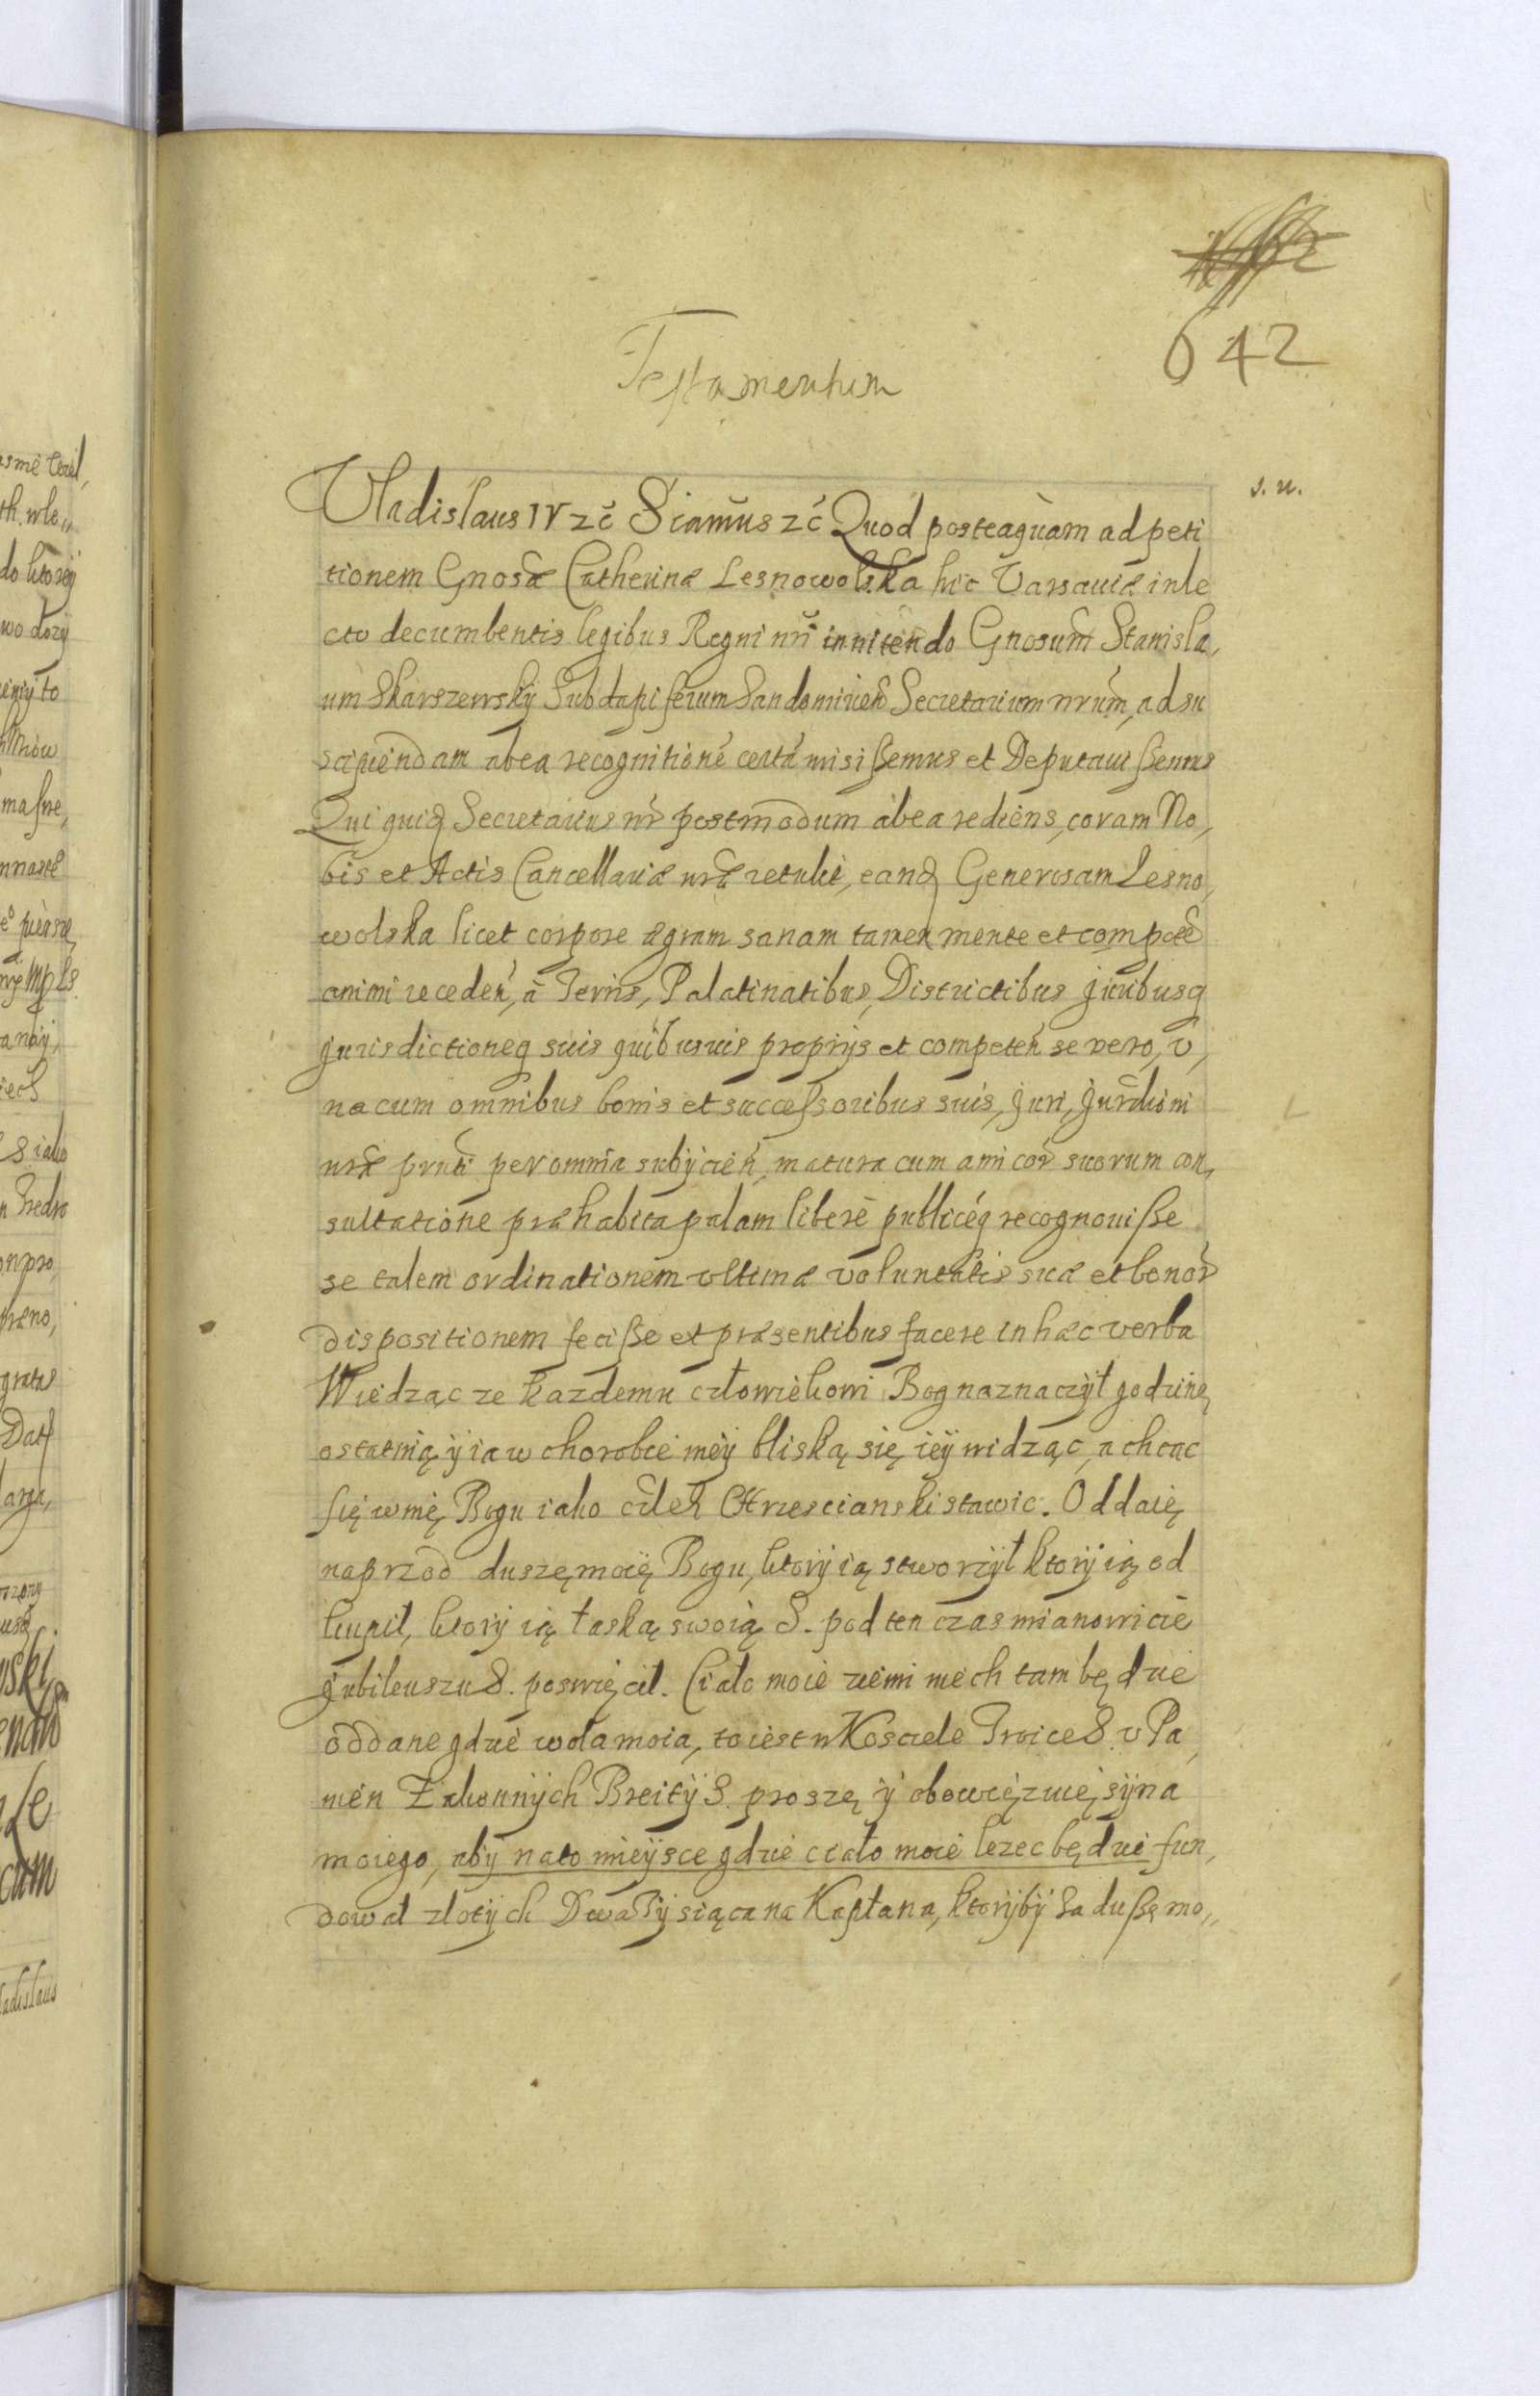 642
Testamentum
s. n.
Vladislaus IV zc̃ Siamũs zć Quod posteaquam ad peti
tionem Gnosæ Catherinæ Lesnowolska hic Varsauiæ in le
cto decumbentis legibus Regni nr̃i innitendo Gnosum̃ Stanisla,
um Skarszewskÿ Subdapiferum Sandomirien̄ Secretarium nrum̃, ad su
scipiendam ab ea recognitioné certá misißemus et Deputauißemus
Qui quidq Secretarius nr̃ postmodum ab ea rediens, coram No,
bis et Actis Cancellariæ nrǣ retulit, eandq Generosam Lesno,
wolska licet corpore ægram sanam tamen mente et compotē
animi receden̄, à Terris, Palatinatibus, Districtibus juribusq
jurisdictioneq suis quibusuis proprÿs et competen̄ se vero, v,
na cum omnibus bonis et succeßoribus suis, juri, jurđioni
nrǣ prnti per omnia subÿcien̄, matura cum amicor̃ suorum con,
sultatione præhabita palam liberè publicéq recognouiße
se talem ordinationem vltimæ voluntatis suæ et bonor̃
dispositionem feciße et præsentibus facere in hæc verba
Wiedząc ze kazdemu człowiekowi Bog naznaczÿł godzinę
ostatnią ÿ ia w chorobie meÿ bliską się ieÿ widząc, a chcąc
się wmę Bogu iako człek Chrzescianski stawic. Oddaię
naprzod duszę moię Bogu, ktorÿ ią stworzÿł ktorÿ ią od
kupił, ktorÿ ią łaską swoią S. pod ten czas mianowicie
jubileuszu S. poswięcił. Ciało moie ziemi niech tam będzie
oddane gdzie wola moia, to iest w Kosciele Troice S. v Pa,
nien Zakonnÿch Breitÿ S. proszę ÿ obowięzuię sÿna
moiego, abÿ na to mieÿsce gdzie ciało moie lezec będzie fun,
dował złotÿch Dwa Tÿsiąca na Kapłana, ktorÿbÿ Za dußę mo,,